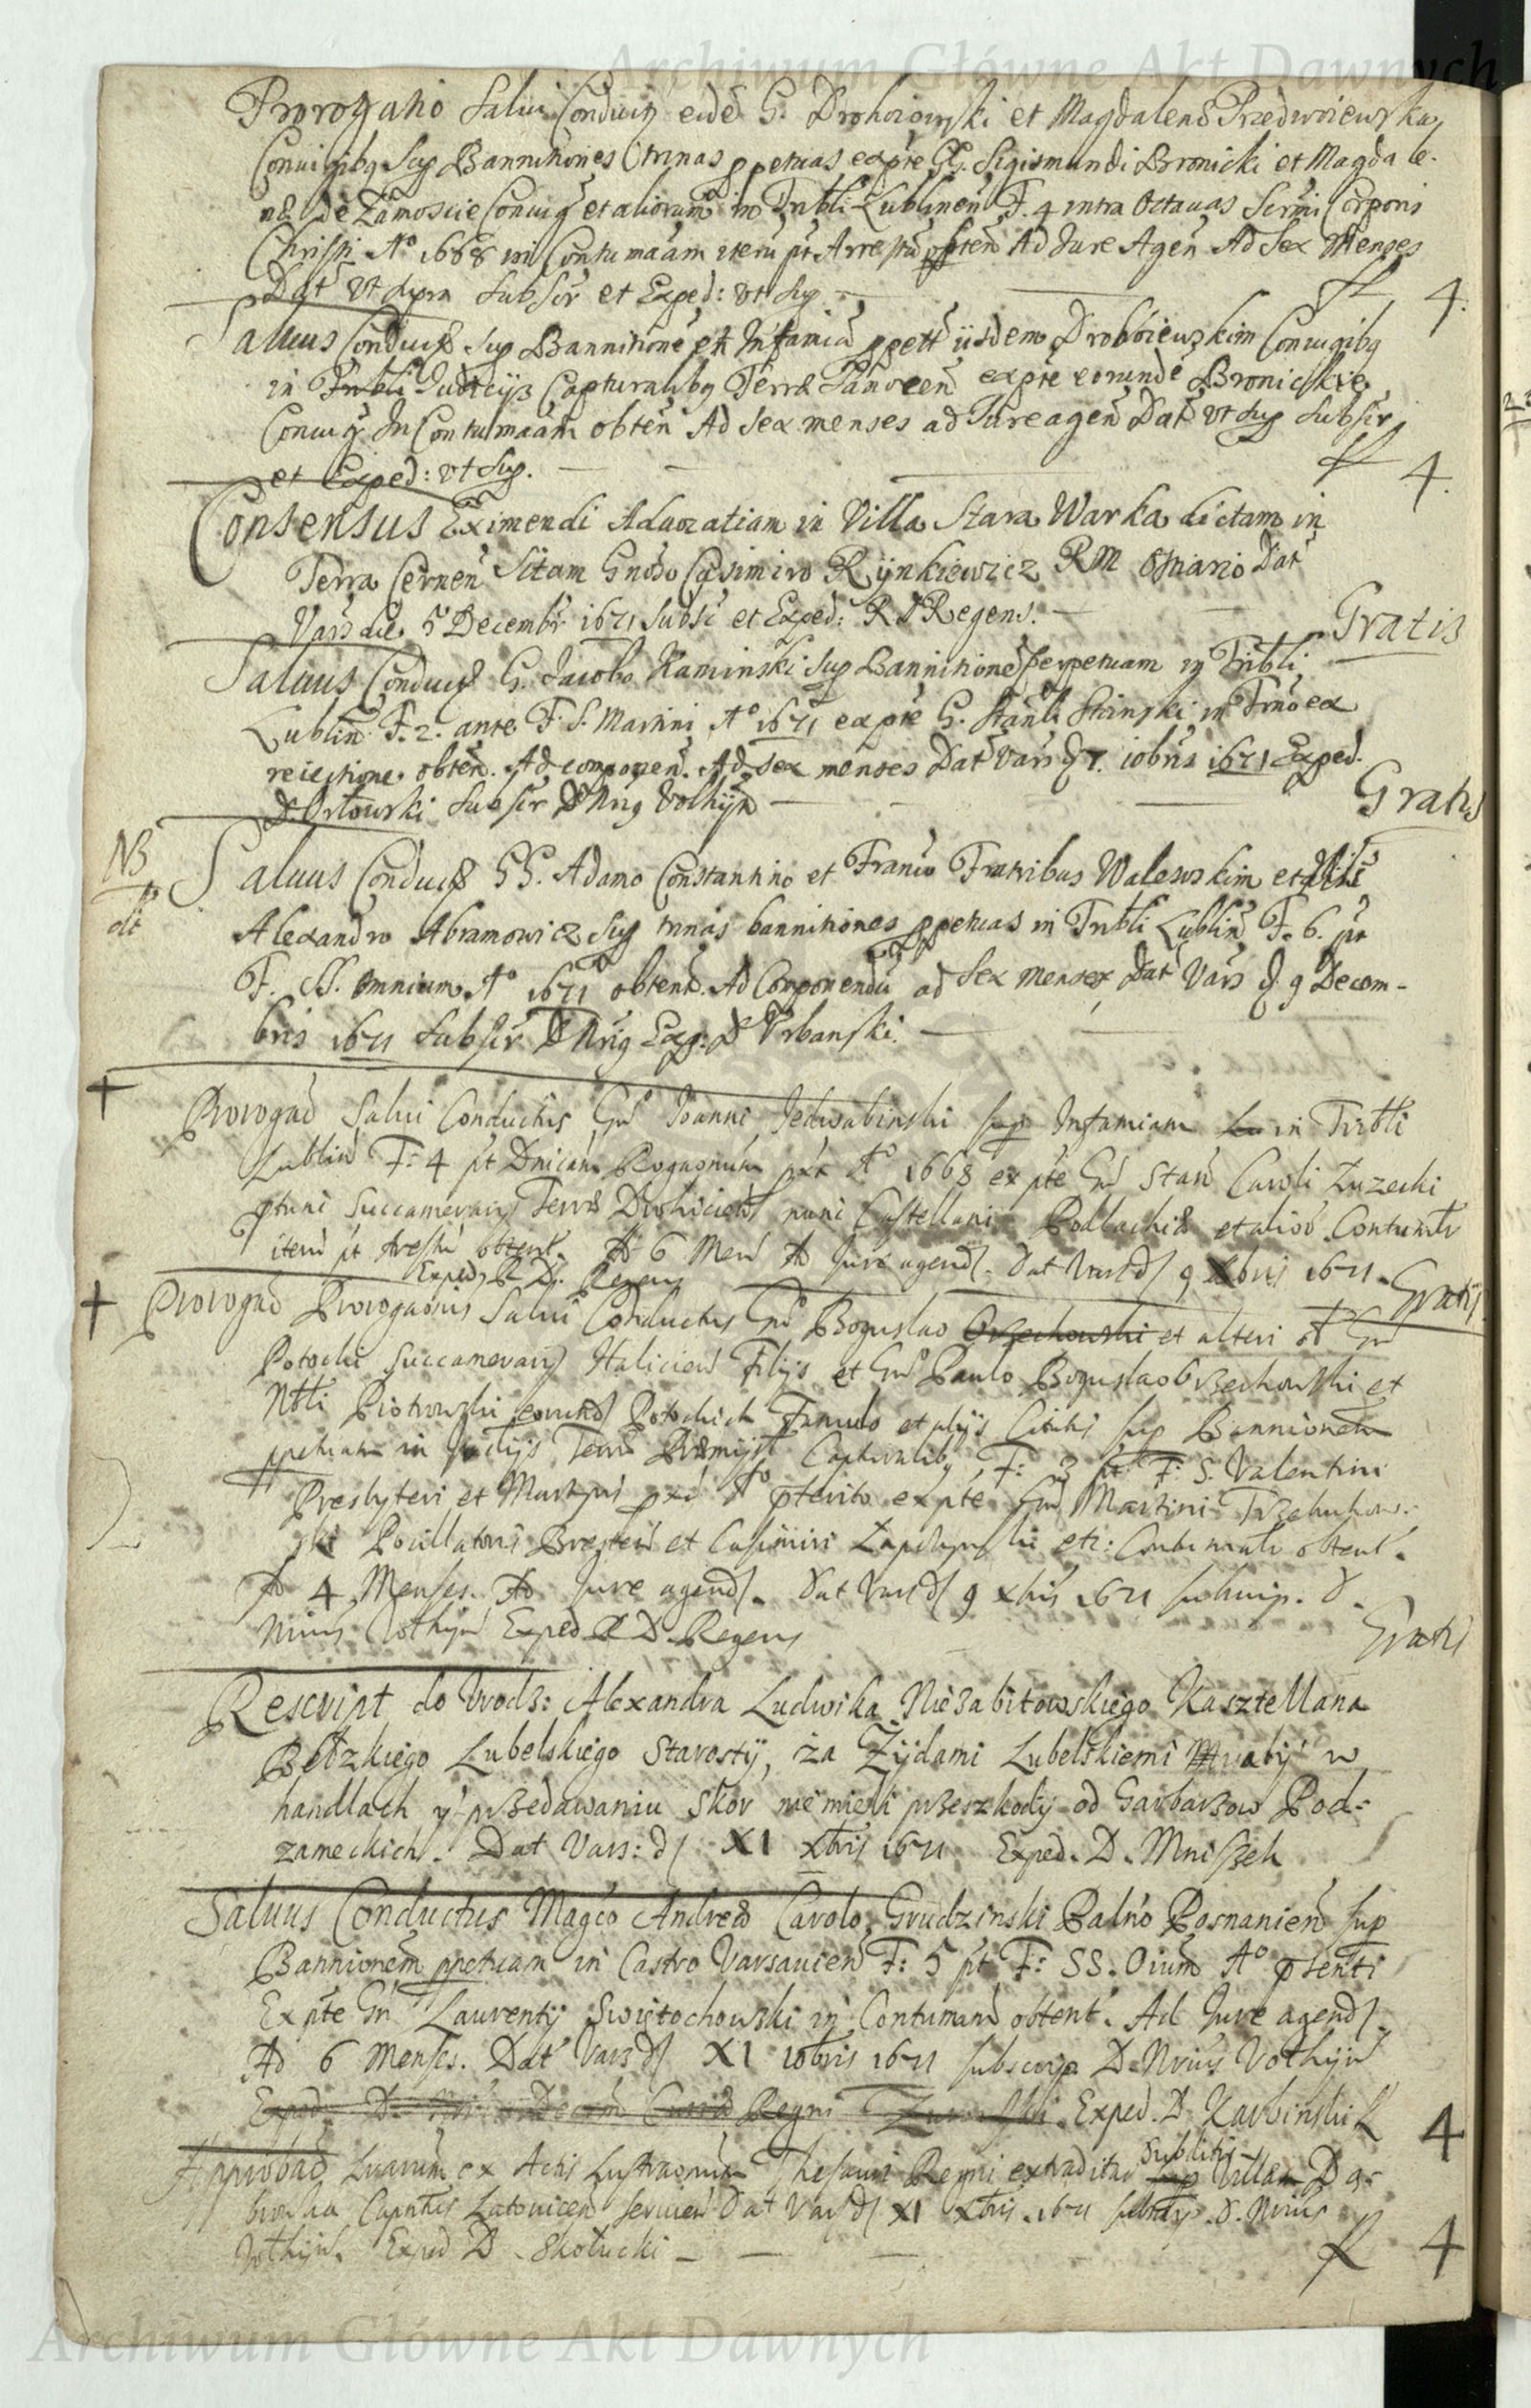 Archiwum Główne Akt Dawnych
Prorogatio Salui Conduct9 eidē G. Drohoiowski et Magdalenæ Przedwoiewska
Coniugibq Sup Bannitiones trinas ppetuas ex pte GG. Sigismundi Bronicki et Magdale-
næ de Zamoscie Coniug et aliorum in Tribli Lublinen F. 4 intra Octauas Ssmi Corporis
Christi A° 1668 in Contumaciam iterū pt Arrestū obten Ad Jure Agen Ad Sex Menses
Dat vt supra Subscr et Exped: vt Sup fl 4.
Saluus Conduct9 Sup Bannitionē et Infamiā ppett iisdem Drohoiewskim Coniugibq
in Judicijs Capturalibq Terræ Sanocen ex pte eorundē Bronickie
Coniug In Contumaciam obten Ad Sex menses ad Jure agen Dat vt Sup Subscr
et Exped: vt Sup. fl 4.
Consensus Eximendi Aduocatiam in Villa Stara Warka dictam in
Terra Cernen Sitam Gnoso Casimiro Rÿnkiewicz RM Dat
Varsaviæ 5 Decembr 1671 Subsc et Exped: R D Regens. Gratis
Saluus Conduct9 G. Jacobo Kaminski Sup Bannitionē perpetuam in Tribli
Lublin F. 2. ante F. S. Martini A° 1671 ex pte G. Stanli Stinski in Trno ex
reiectione obten. Ad componen. Ad Sex menses Dat Vars d 7. xobris 1671 Exped.
D Orłowski Subscr D Nrius Wolhÿn Gratis
NB
dt
Saluus Conduct9 GG. Adamo Constantino et Franco Fratribus Walewskim et
Alexandro Abramowicz Sup trinas bannitiones ppetuas in Tribli Lublin F. 6. pt
F. SS. omnium A° 1671 obtent. Ad Componendū ad Sex menses Dat Vars d. 9 Decem-
bris 1671 Subscr D Nrius Exp: D Vrbanski.
+ Prorogaō Salui Conductus Gn Joanni Jedwabinski sup Infamiam in Tribli
Lublin F: 4 pt Dnicam Rogaonum pxa A° 1668 ex pte Gn Stan Caroli Łuzecki
ptunc Succamerarij Terræ Drohicien nunc Castellani Podlachiæ et alior. Contumtr
item pt Arestū obtent. Ad 6 Men Ad Jure agend. Dat Vars d 9 Xbris 1671. Gratis
Exped R D. Regens
+ Prorogaō Prorogaonis Salui Conductus Gn Boguslao Orzechowski et alteri Gn
Potocki Succamerarij Halicien Filijs et Gn Paulo Boguslao Orzechowski et
Nbli Piotrowski eorund Potockich Famulo et alijs Citatis sup Bannionem
ppetuam in Judijs Terræ Præmijsl Capturalibq F: 3 pt F: S. Valentini
Presbyteri et Martyris pxe A° pterito ex pte Gn Martini Trzebuchow-
ski Pocillatoris Bresten et Casimiri etc: Contumatr obtent.
Ad 4 Menses. Ad Jure agend. Dat Vars d 9 xbris 1671 subscrip. D.
Nrius Wolhyn Exped R D Regens Gratis
Rescript do Vrodz: Alexandra Ludwika Niezabitowskiego Kasztellana
Bełzkiego Lubelskiego Starostÿ, za Zÿdami Lubelskiemi abÿ w
handlach ÿ przedawaniu Skor nie mieli przeszkodÿ od Garbarzow Pod-
zameckich. Dat Vars: d XI xbris 1671 Exped. D. Mniszek
Saluus Conductus Magco Andreæ Carolo Grudzinski Palno Posnanien sup
Bannionem ppetuam in Castro Varsauien F: 5 pt F: SS. Oium A° pnti
Ex pte Gn Laurentÿ Swiętochowski in Contumam obtent. Ad Jure agend.
Ad 6 Menses. Dat Vars d XI xobris 1671 subscrip D. Nrius Wolhÿn
Exped. D. Regni Exped. D. Karbinski fl 4
Approbaō Lrarum ex Actis Lustraonum Thesauri Regni extraditar Subditis Villæ Dą-
browka Captus Latouicen seruien Dat Vars d XI xbris 1671 subscrip. D. Nrius
Wolhÿn. Exped D. Skotucki fl 4
Archiwum Główne Akt Dawnych